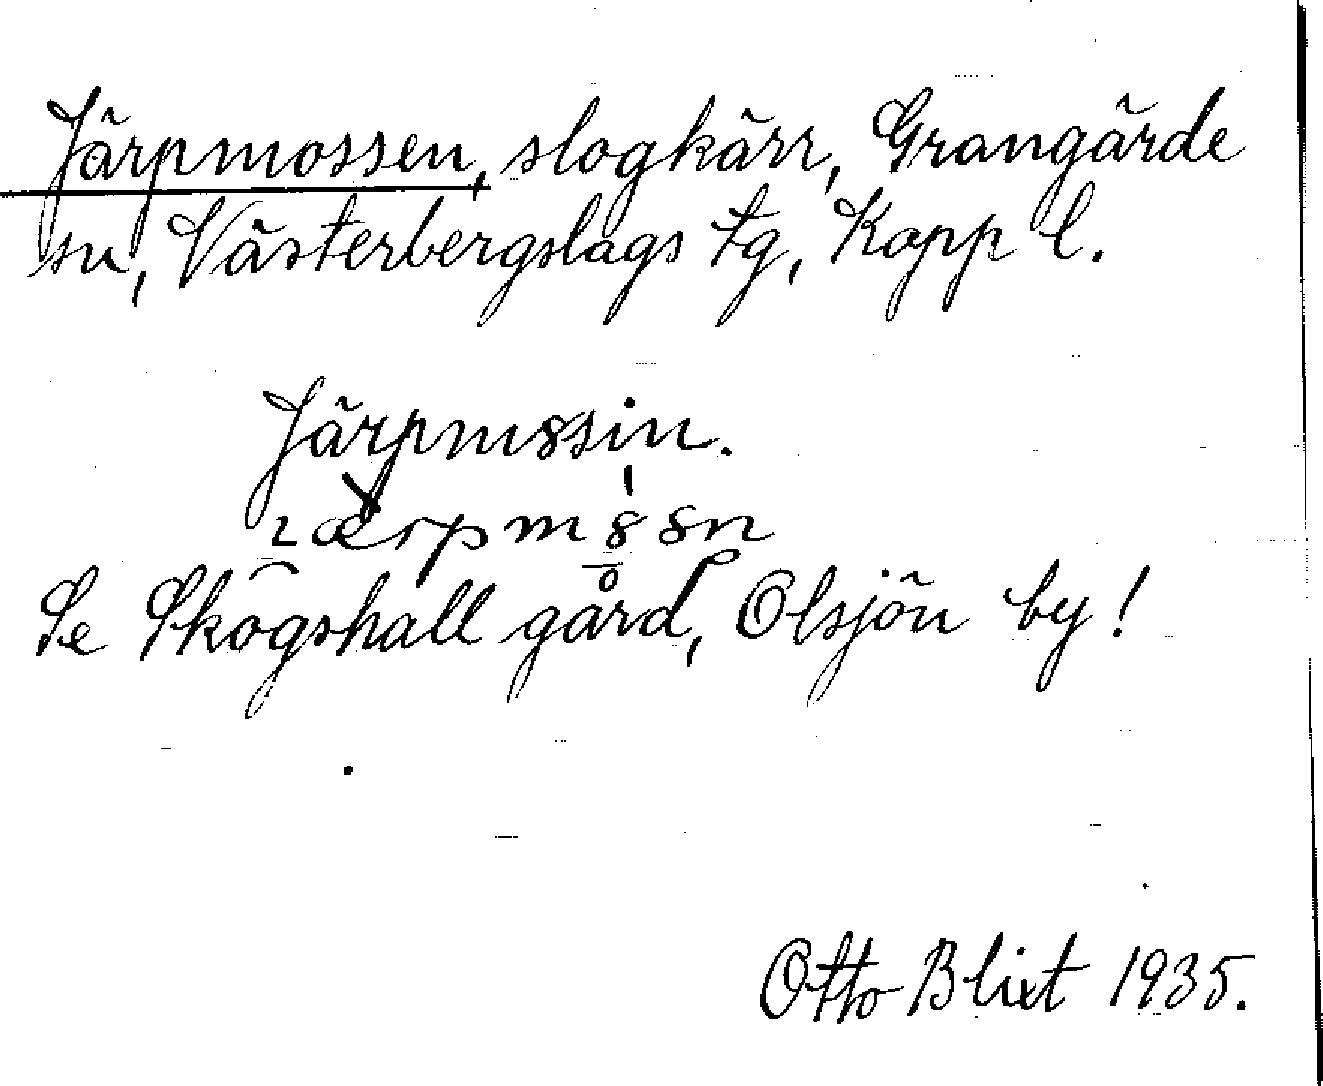 Järpmossen, slogkärr, Grangärde
sn, Västerbergslags tg, Kopp l.
Se Skogshall gård, Olsjön by!
Otto Blixt 1935.